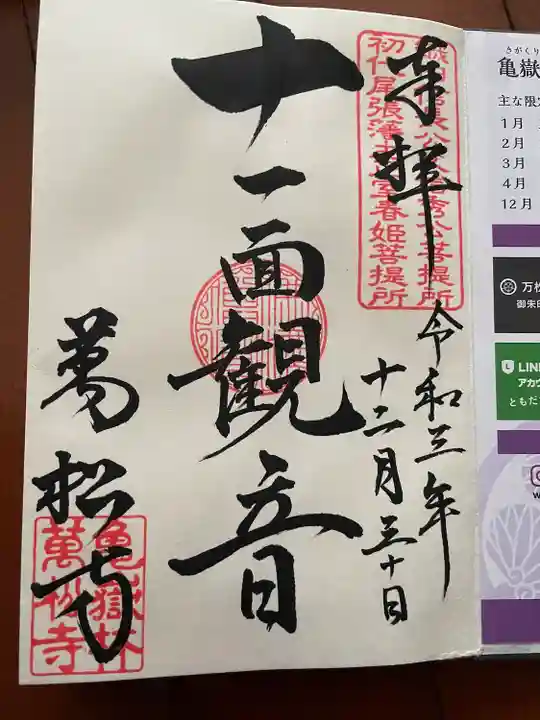 奉拝
令和三年
十二月三十日
十一面観音
萬松寺
亀嶽林
萬松寺
初代尾張藩主正室春姫菩提所
きがくり
亀嶽
主な限定
1月
2月
3月
4月
12月
万松
御朱印
LINE
アカウ
ともだ